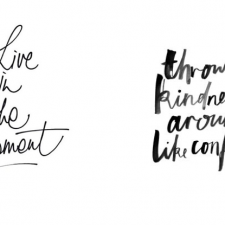 Live
in
the
moment
throw
kindness
around
like confetti